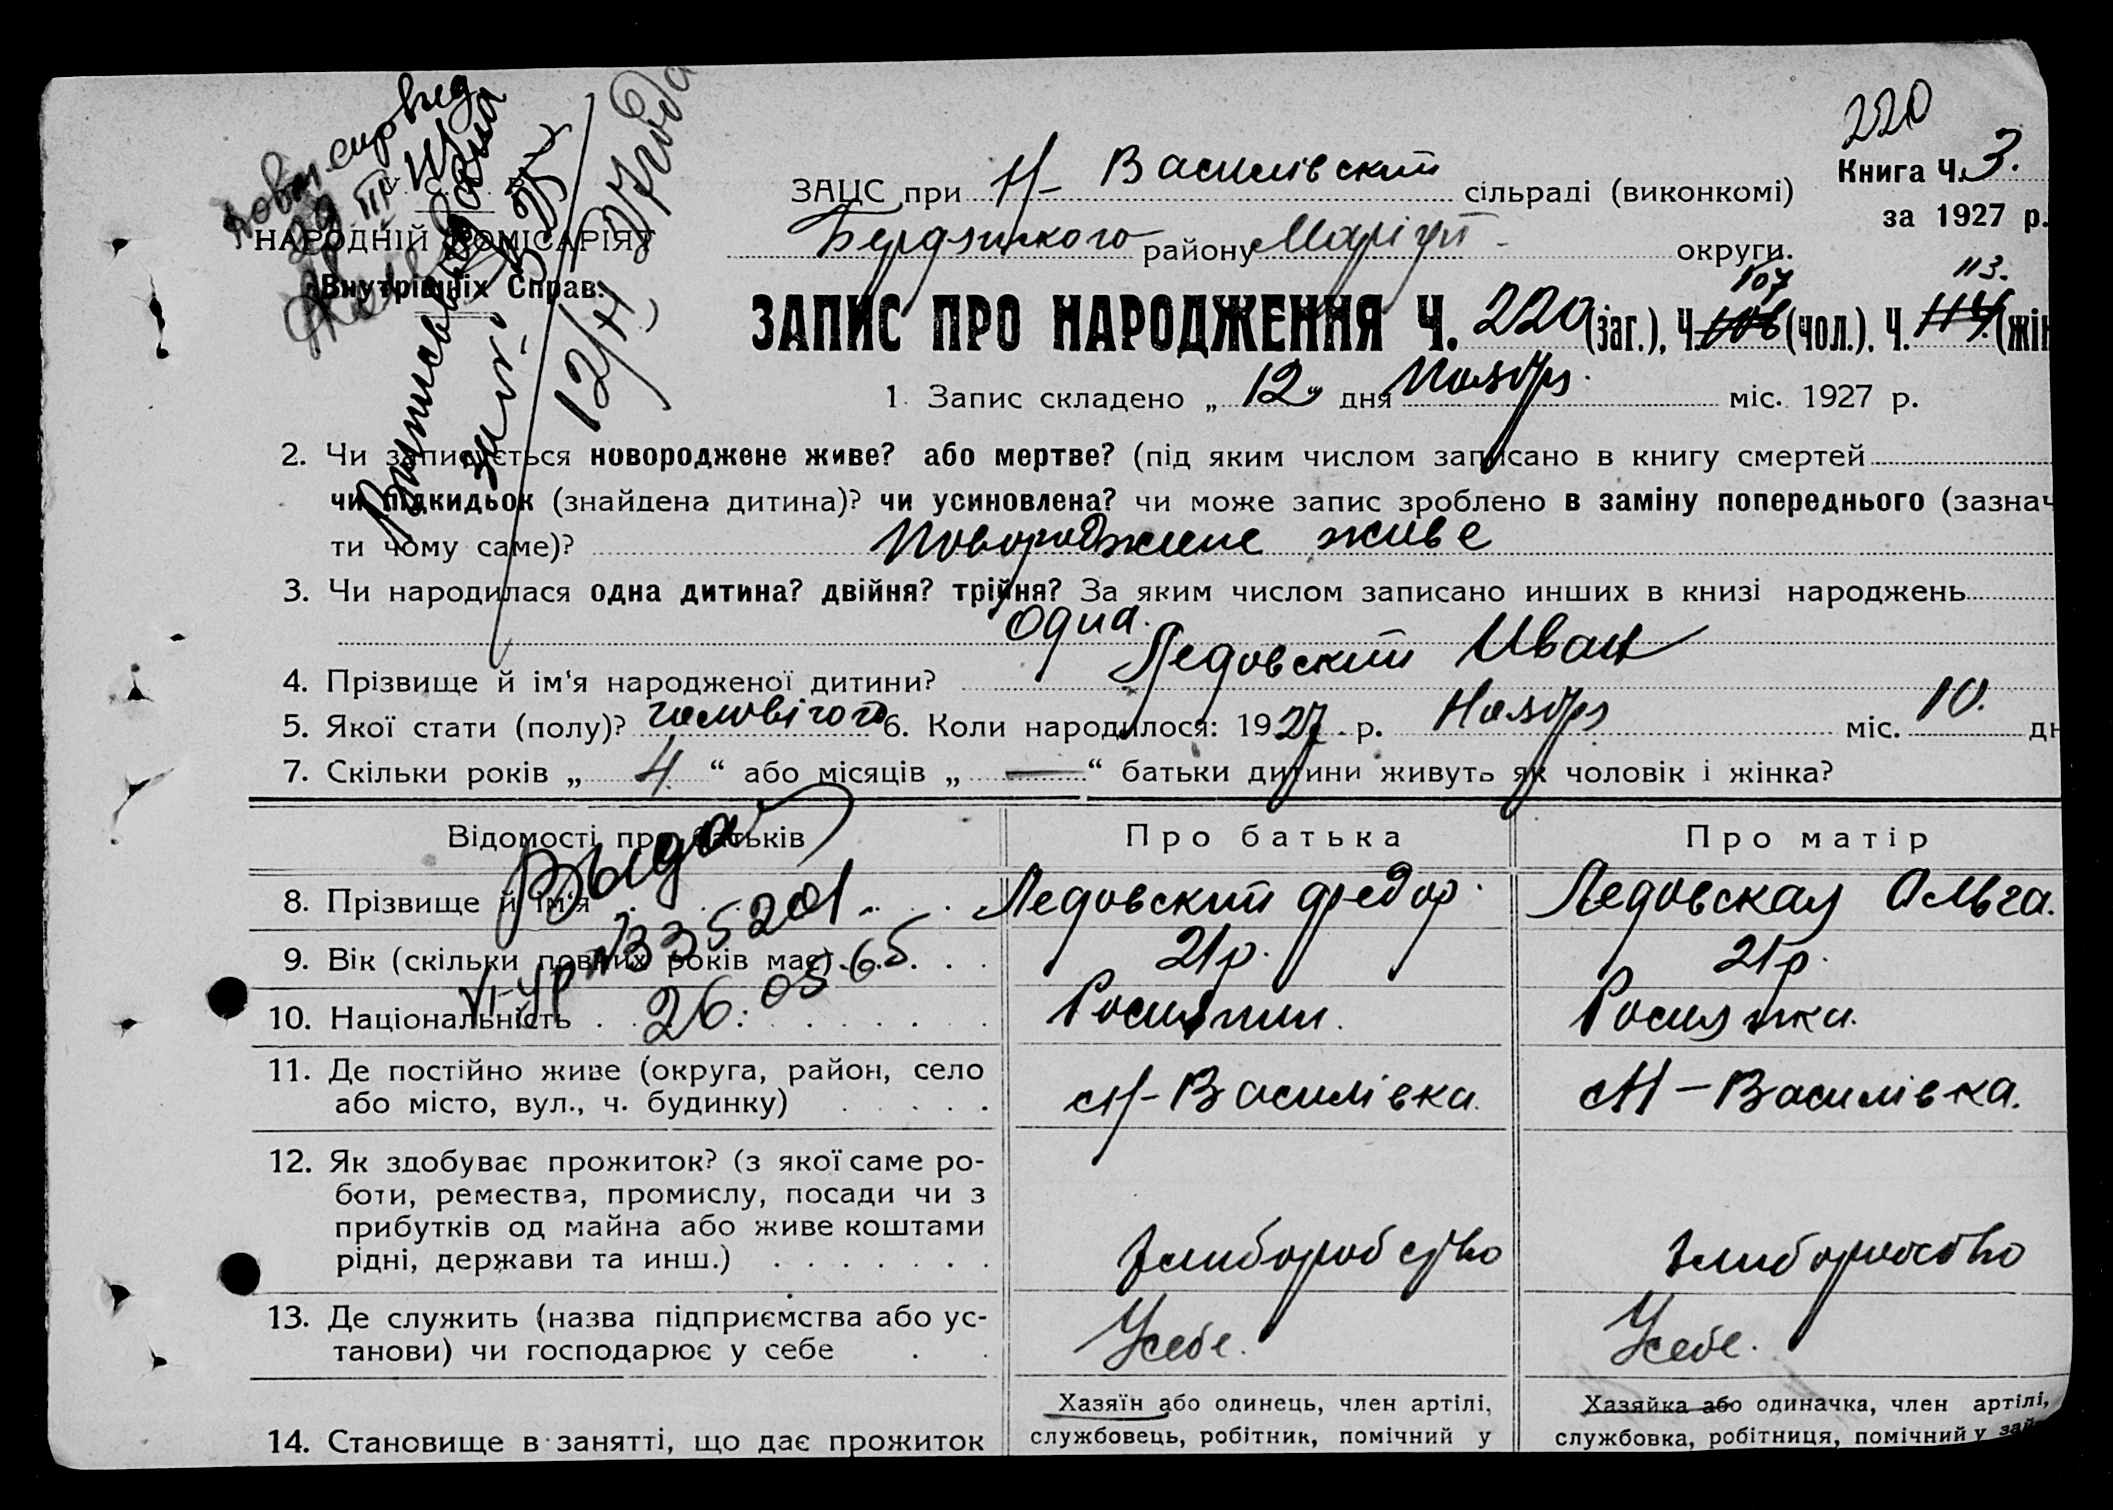 220
ЗАЦС при Н-Василівский сільраді (виконкомі)
Книга Ч. 3.
за 1927 р.
Бердянского району Маріуп. округи.
У. С. Р. Р.
НАРОДНІЙ КОМІСАРІЯТ
Внутрішніх Справ.
107 113.
ЗАПИС ПРО НАРОДЖЕННЯ Ч. 220 (заг.), Ч. 106 (чол.). Ч. 114 (жін
1. Запис складено „ 12 " дня Ноября міс. 1927 р.
2. Чи записується новороджене живе? або мертве? (під яким числом записано в книгу смертей
чи підкидьок (знайдена дитина)? чи усиновлена? чи може запис зроблено в заміну попереднього (зазнач
ти чому саме)? Новороджене живе
3. Чи народилася одна дитина? двійня? трійня? За яким числом записано инших в книзі народжень
одна.
4. Прізвище й ім'я народженої дитини? Ледовский Иван
5. Якої стати (полу)? чоловічого 6. Коли народилося: 1927 р. Ноября міс. 10. дн
7. Скільки років „ 4 “ або місяців „ — “ батьки дитини живуть як чоловік і жінка?
Відомості про батьків Про батька Про матір
8. Прізвище й ім'я Ледовский Федор. Ледовская Ольга.
9. Вік (скільки повних років має) 21 р. 21 р.
10. Національність Росиянин. Росиянка.
11. Де постійно живе (округа, район, село
або місто, вул., ч. будинку) Н-Василівка. Н-Василівка.
12. Як здобуває прожиток? (з якої саме ро-
боти, ремества, промислу, посади чи з
прибутків од майна або живе коштами
рідні, держави та инш.) Хлиборобство Хлиборобство
13. Де служить (назва підприємства або ус-
танови) чи господарює у себе У себе. У себе.
14. Становище в занятті, що дає прожиток
Хазяїн або одинець, член артілі,
службовець, робітник, помічний у
Хазяйка або одиначка, член артілі,
службовка, робітниця, помічний у зай
Выда
VI-УР №335201
26.05.65